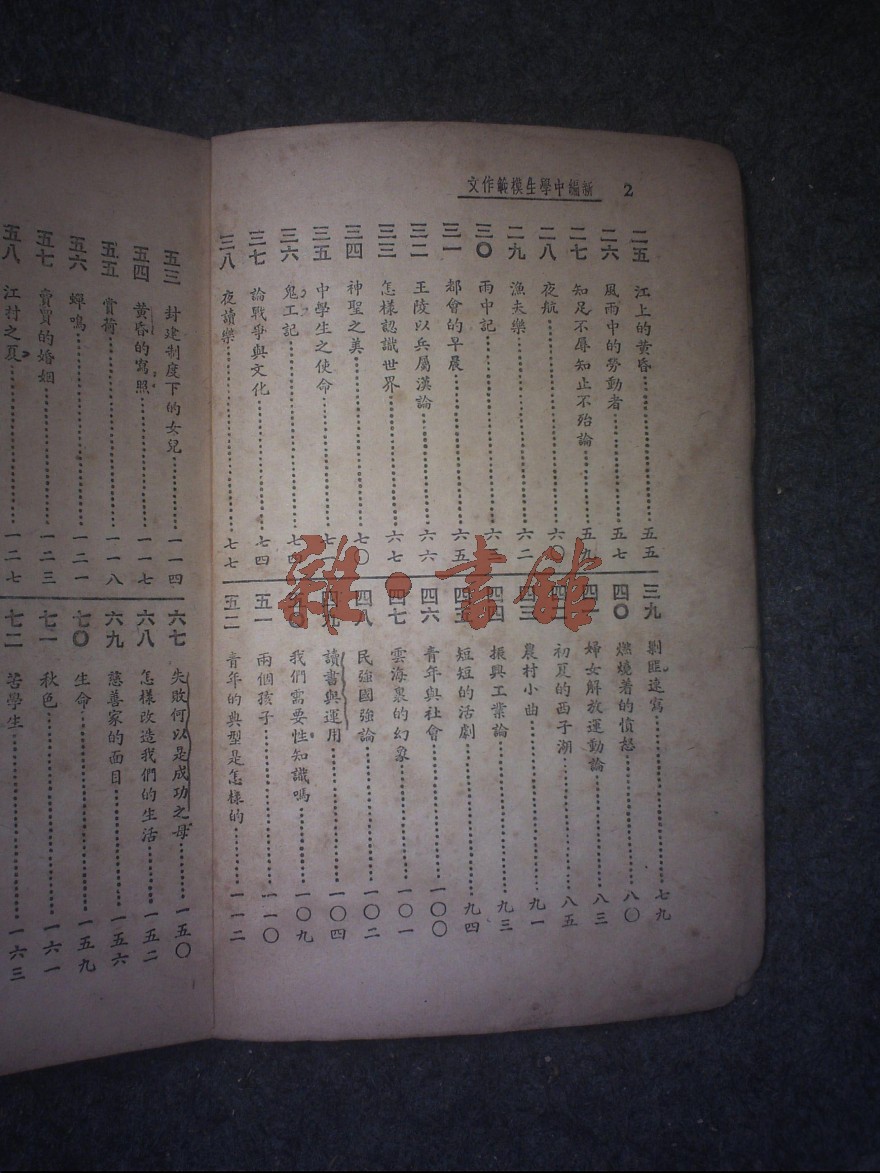 新編中學生模範作文 2
二五 江上的黃昏 五五
二六 風雨中的勞動者 五七
二七 知足不辱知止不殆論 五九
二八 夜航 六〇
二九 漁夫樂 六二
三〇 雨中記 六三
三一 都會的早晨 六五
三二 王陵以兵屬漢論 六六
三三 怎樣認識世界 六七
三四 神聖之美 七〇
三五 中學生之使命 七一
三六 鬼工記 七四
三七 論戰爭與文化 七四
三八 夜讀樂 七七
三九 剿匪速寫 七九
四〇 燃燒着的憤怒 八〇
四一 婦女解放運動論 八三
四二 初夏的西子湖 八五
四三 農村小曲 九一
四四 振興工業論 九三
四五 短短的活劇 九四
四六 青年與社會 一〇〇
四七 雲海裏的幻象 一〇一
四八 民強國強論 一〇二
四九 讀書與運用 一〇四
五〇 我們需要性知識嗎 一〇九
五一 兩個孩子 一一〇
五二 青年的典型是怎樣的 一一二
五三 封建制度下的女兒 一一四
五四 黃昏的寫照 一一七
五五 賞荷 一一八
五六 蟬鳴 一二一
五七 賣買的婚姻 一二三
五八 江村之夏 一二七
六七 失敗何以是成功之母 一五〇
六八 怎樣改造我們的生活 一五二
六九 慈善家的面目 一五六
七〇 生命 一五九
七一 秋色 一六一
七二 苦學生 一六三
雜·書館